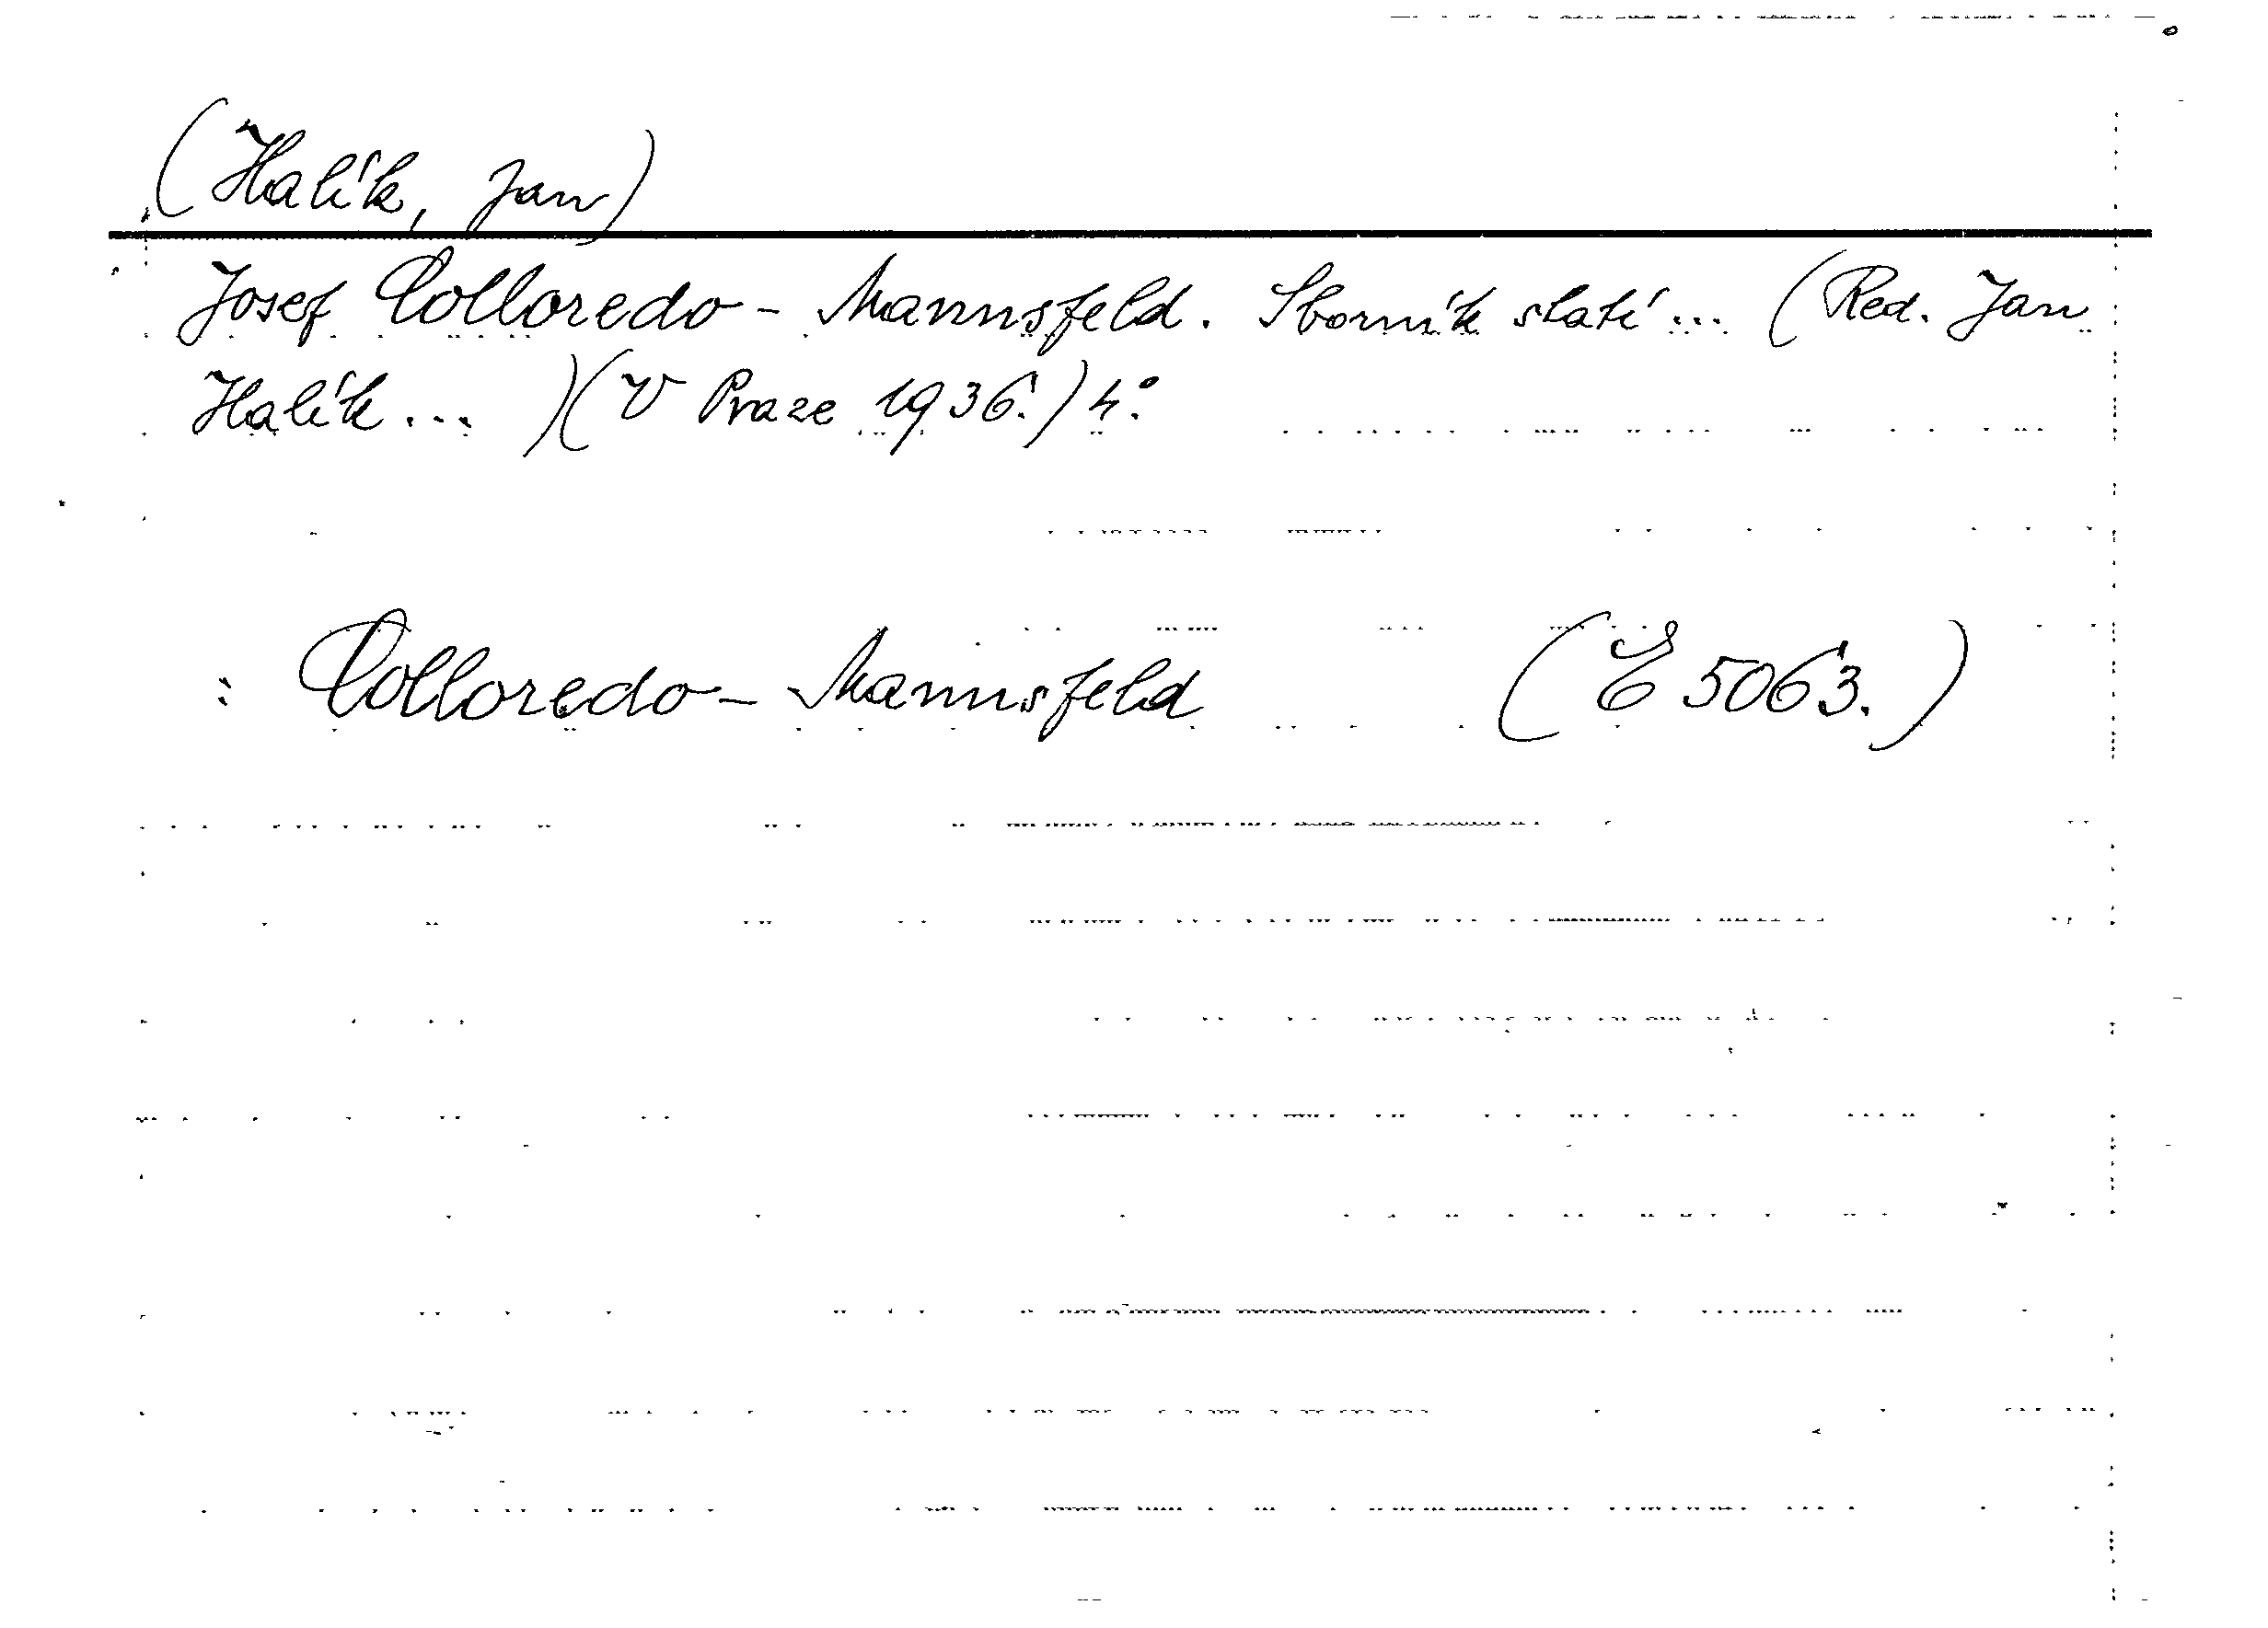 (Halík, Jan)
Josef Colloredo - Mannsfeld. Sborník statí ... (Red. Jan
Halík ... )(V Praze 1936.) 4°.
: Colloredo - Mannsfeld (E 5063.)